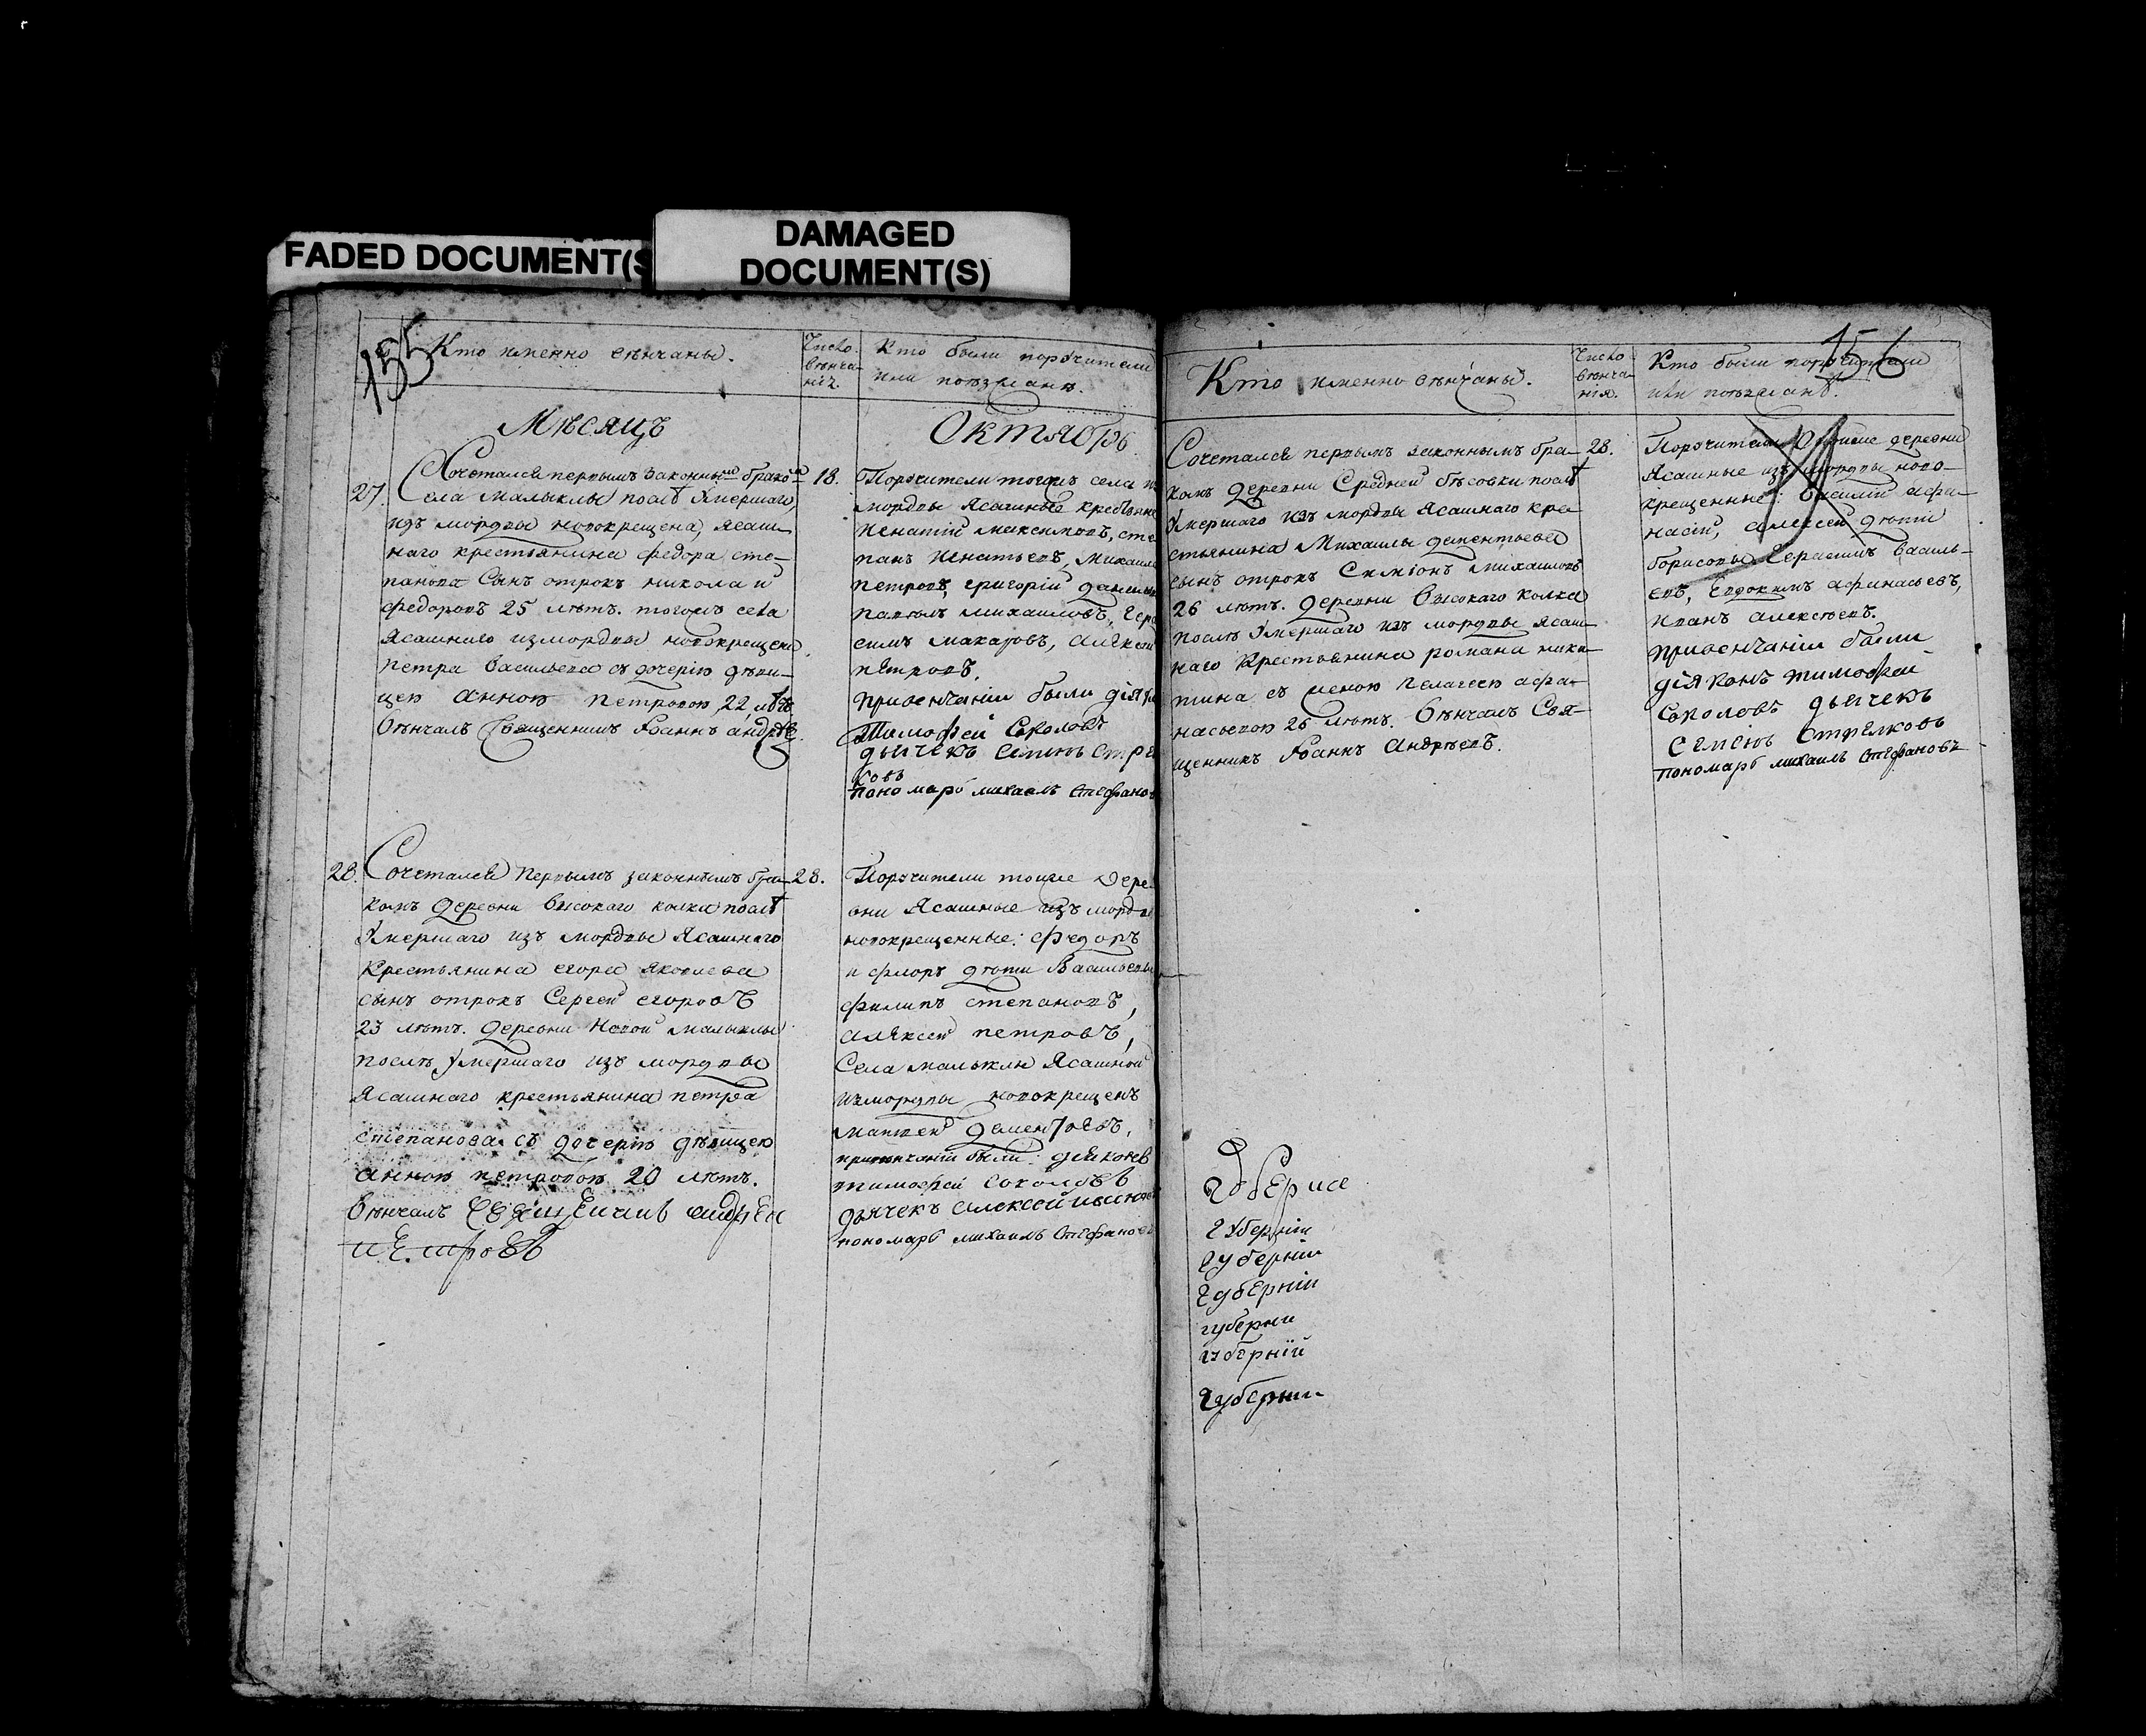 FADED DOCUMENT(S
DAMAGED
DOCUMENT(S)
155
Кто именно вѣнчаны.
Число
вѣнча-
нія.
Кто были поручители
или поѣзжанѣ.
Мѣсяцъ
Октябрь
27.
Сочетался первымъ законнымъ бракомъ
села Малыклы послѣ умершаго,
изъ мордвы новокрещена, ясаш-
наго крестьянина федора сте-
панова сынъ отрокъ николай
федоровъ 25 лѣтъ. тогожъ села
ясашнаго измордвы новокрещена
петра васильева съ дочерию дѣви-
цею анною петровою, 22 лѣтъ
Вѣнчалъ Священникъ Іоаннъ андрѣевъ
18.
Поручители тогожъ села
мордвы ясашные
игнатій максимовъ, сте
панъ игнатьевъ, михаил
петровъ, григорій
павелъ михайловъ, гера
симъ макаровъ, алексей
петровъ.
привенчаніи были
Тимофей Соколовъ
дьячекъ семенъ стрел
ковъ
пономарь михаилъ Стефанов
28.
Сочетался первымъ законнымъ бра-
комъ деревни высокаго колка послѣ
умершаго изъ мордвы ясашнаго
крестьянина егора яковлева
сынъ отрокъ Сергей егоровъ
23 лѣтъ. деревни новой малыклы
послѣ умершаго изъ мордвы
ясашнаго крестьянина петра
степанова съ дочерию дѣвицею
анною петровою 20 лѣтъ.
Вѣнчалъ священникъ андрей
петровъ
28.
Поручители тоиже дере
вни ясашные изъ мордвы
новокрещенные: федоръ
и флоръ дѣти Васильевы
филипъ степановъ,
алексей петровъ,
Села малыклы ясашной
измордвы новокрещенъ
матвей дементьевъ,
привенчаніи были: діяконъ
тимофей соколовъ
дьячекъ алексей
пономарь михаилъ Стефанов
156
Кто именно вѣнчаны.
Число
вѣнча-
нія.
Кто были поручители
или поѣзжанѣ.
Сочетался первымъ законнымъ бра-
комъ деревни Средней бѣсовки послѣ
умершаго изъ мордвы ясашнаго кре
стьянина Михаилы дементьева
сынъ отрокъ Симеонъ михаиловъ
26 лѣтъ. деревни высокаго колка
послѣ умершаго изъ мордвы ясаш-
наго крестьянина романа ники-
тина съ женою пелагеею афа-
насьевою 26 лѣтъ. Вѣнчалъ Свя-
щенникъ Іоаннъ Андрѣевъ.
28.
Поручители деревни
ясашные изъ мордвы ново-
крещенные: василій афа-
насій, алексей дѣти
борисовы герасимъ василь-
евъ, евдокимъ афанасьевъ,
иванъ алексѣевъ.
привенчаніи были
діяконъ тимофей
соколовъ дьячекъ
семенъ Стрелковъ
пономарь михаилъ Стефановъ
губернии
губерніи
губерніи
губерніи
губерни
губерніи
губернии